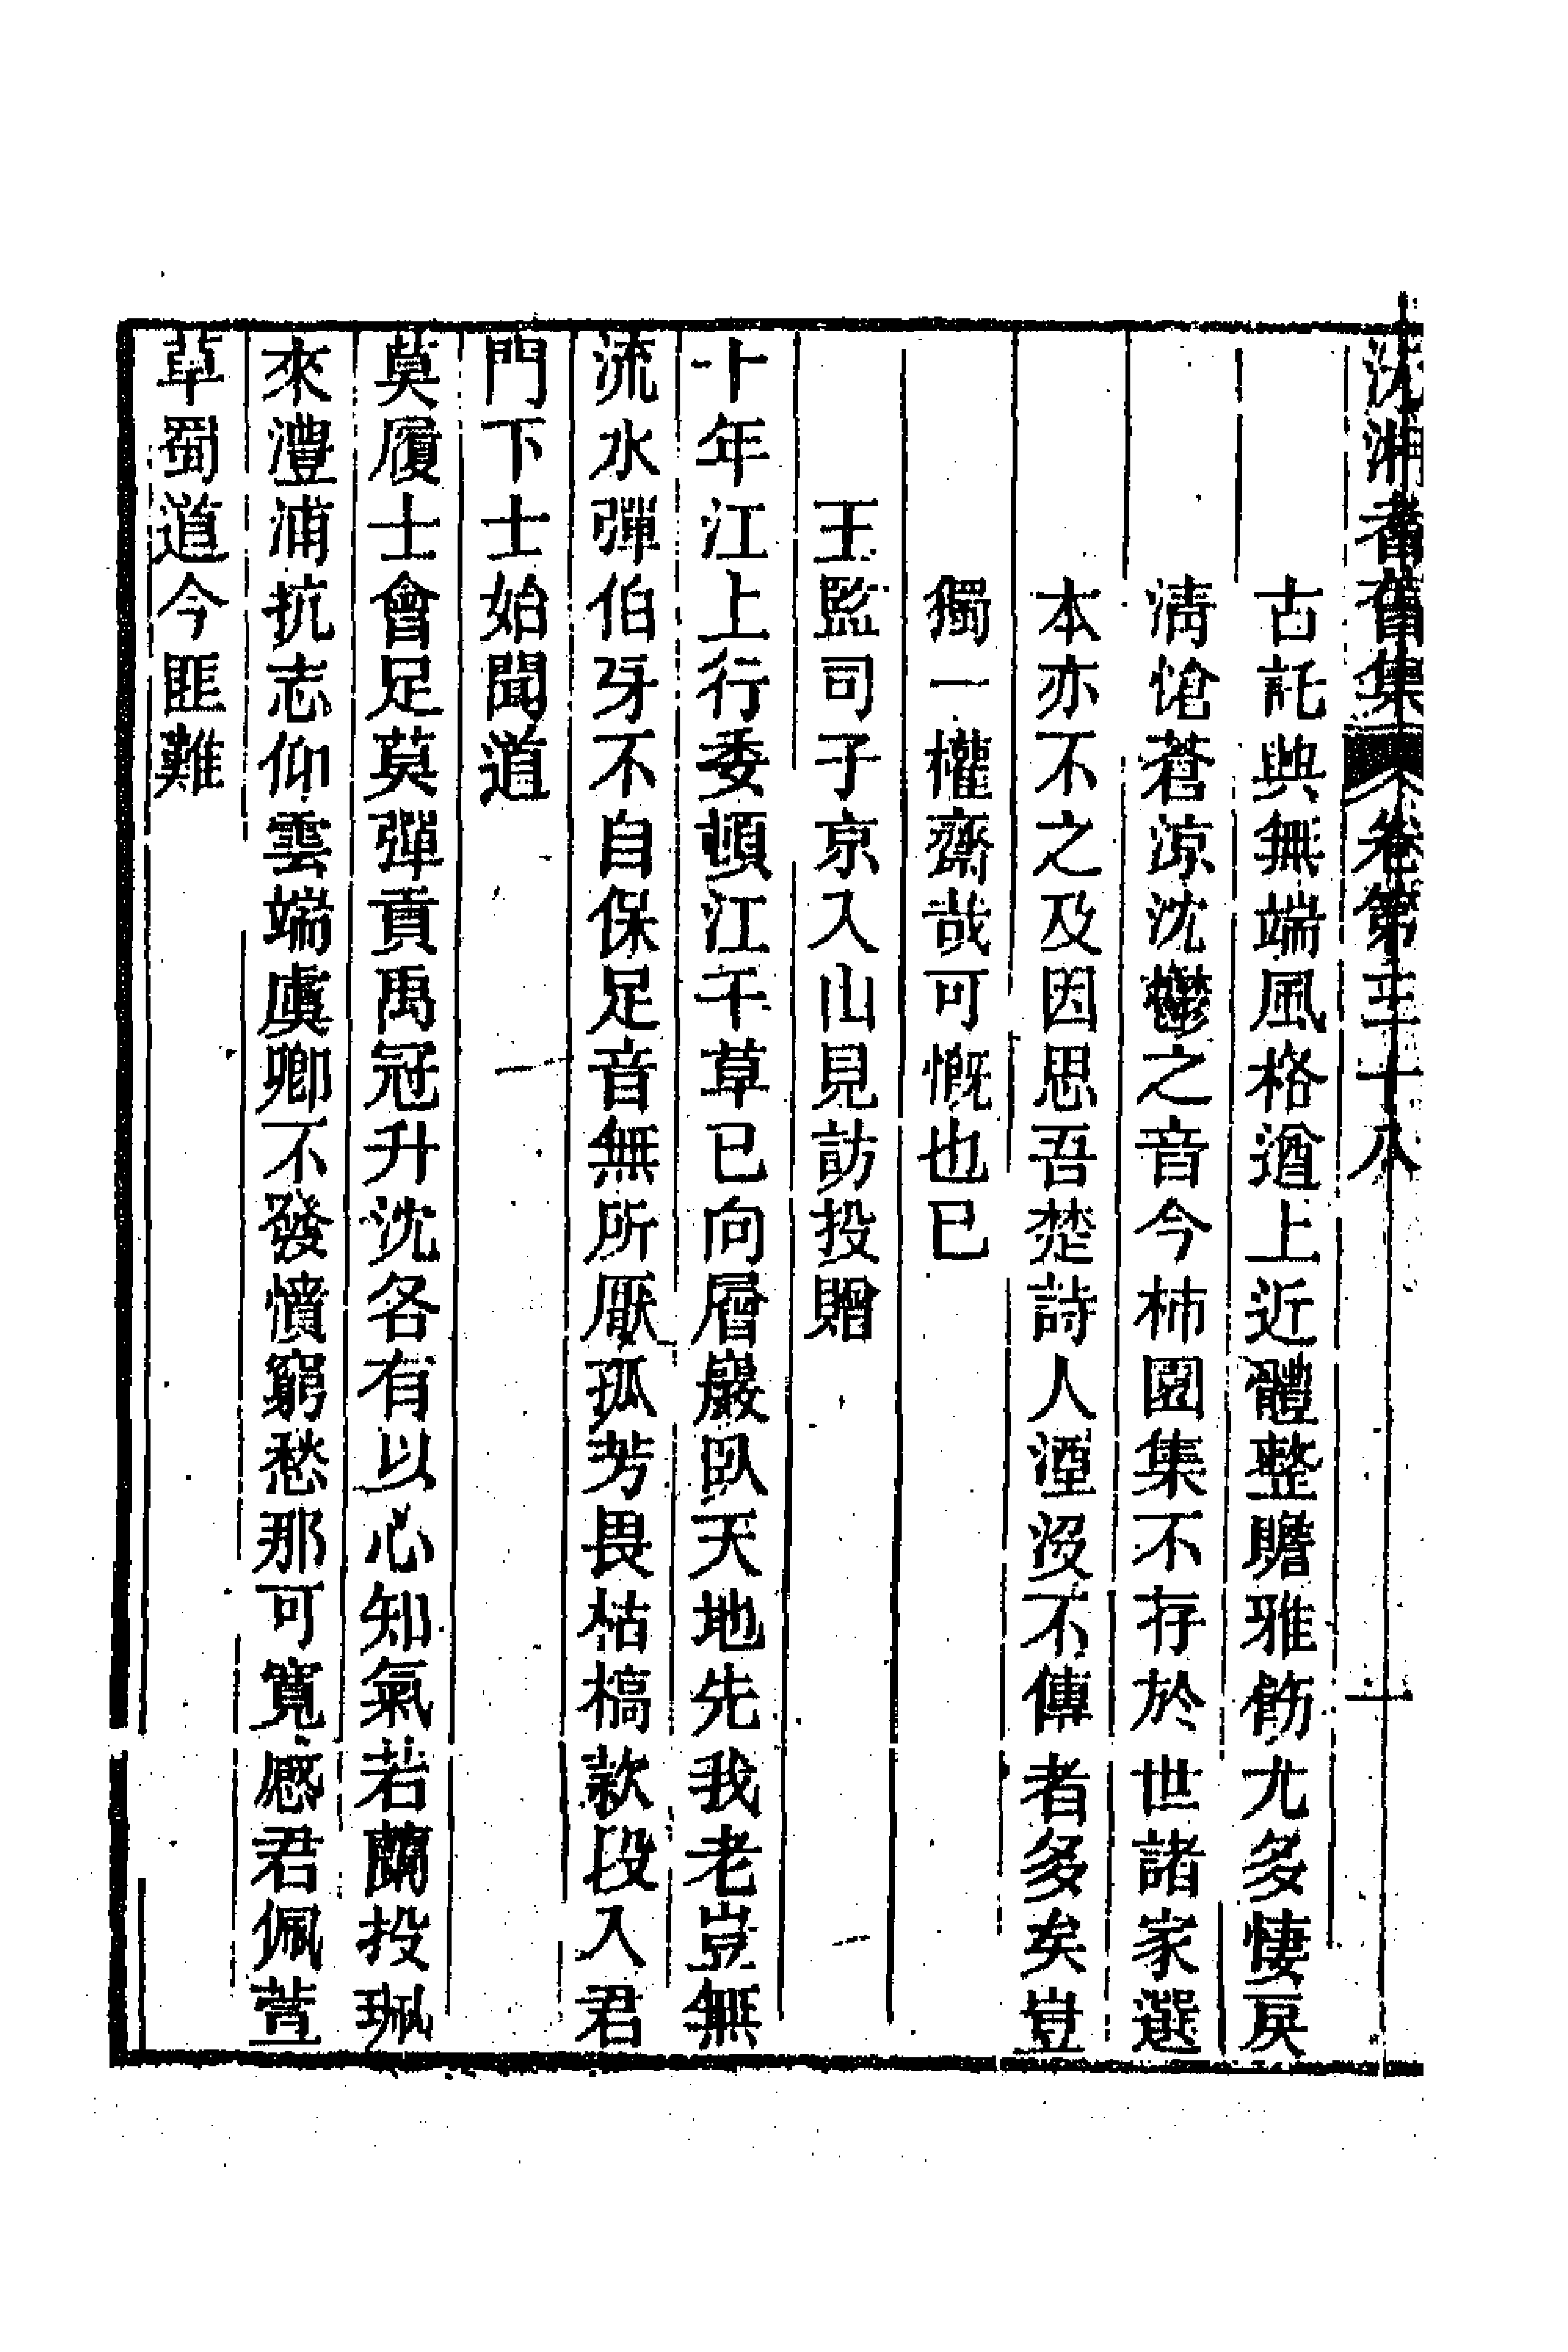 沅湘耆舊集 卷第三十八 十
古託興無端風格遒上近體整贍雅飭尤多悽戾
淸愴蒼涼沈鬱之音今柿園集不存於世諸家選
本亦不之及因思吾楚詩人湮沒不傳者多矣豈
獨一權齋哉可慨也已
王監司子京入山見訪投贈
十年江上行委頓江干草已向層巖臥天地先我老豈無
流水彈伯牙不自保足音無所厭孤芳畏枯槁款段入君
門下士始聞道
莫履士會足莫彈貢禹冠升沈各有以心知氣若蘭投珮
來澧浦抗志仰雲端虞卿不發憤窮愁那可寬感君佩萱
草蜀道今匪難